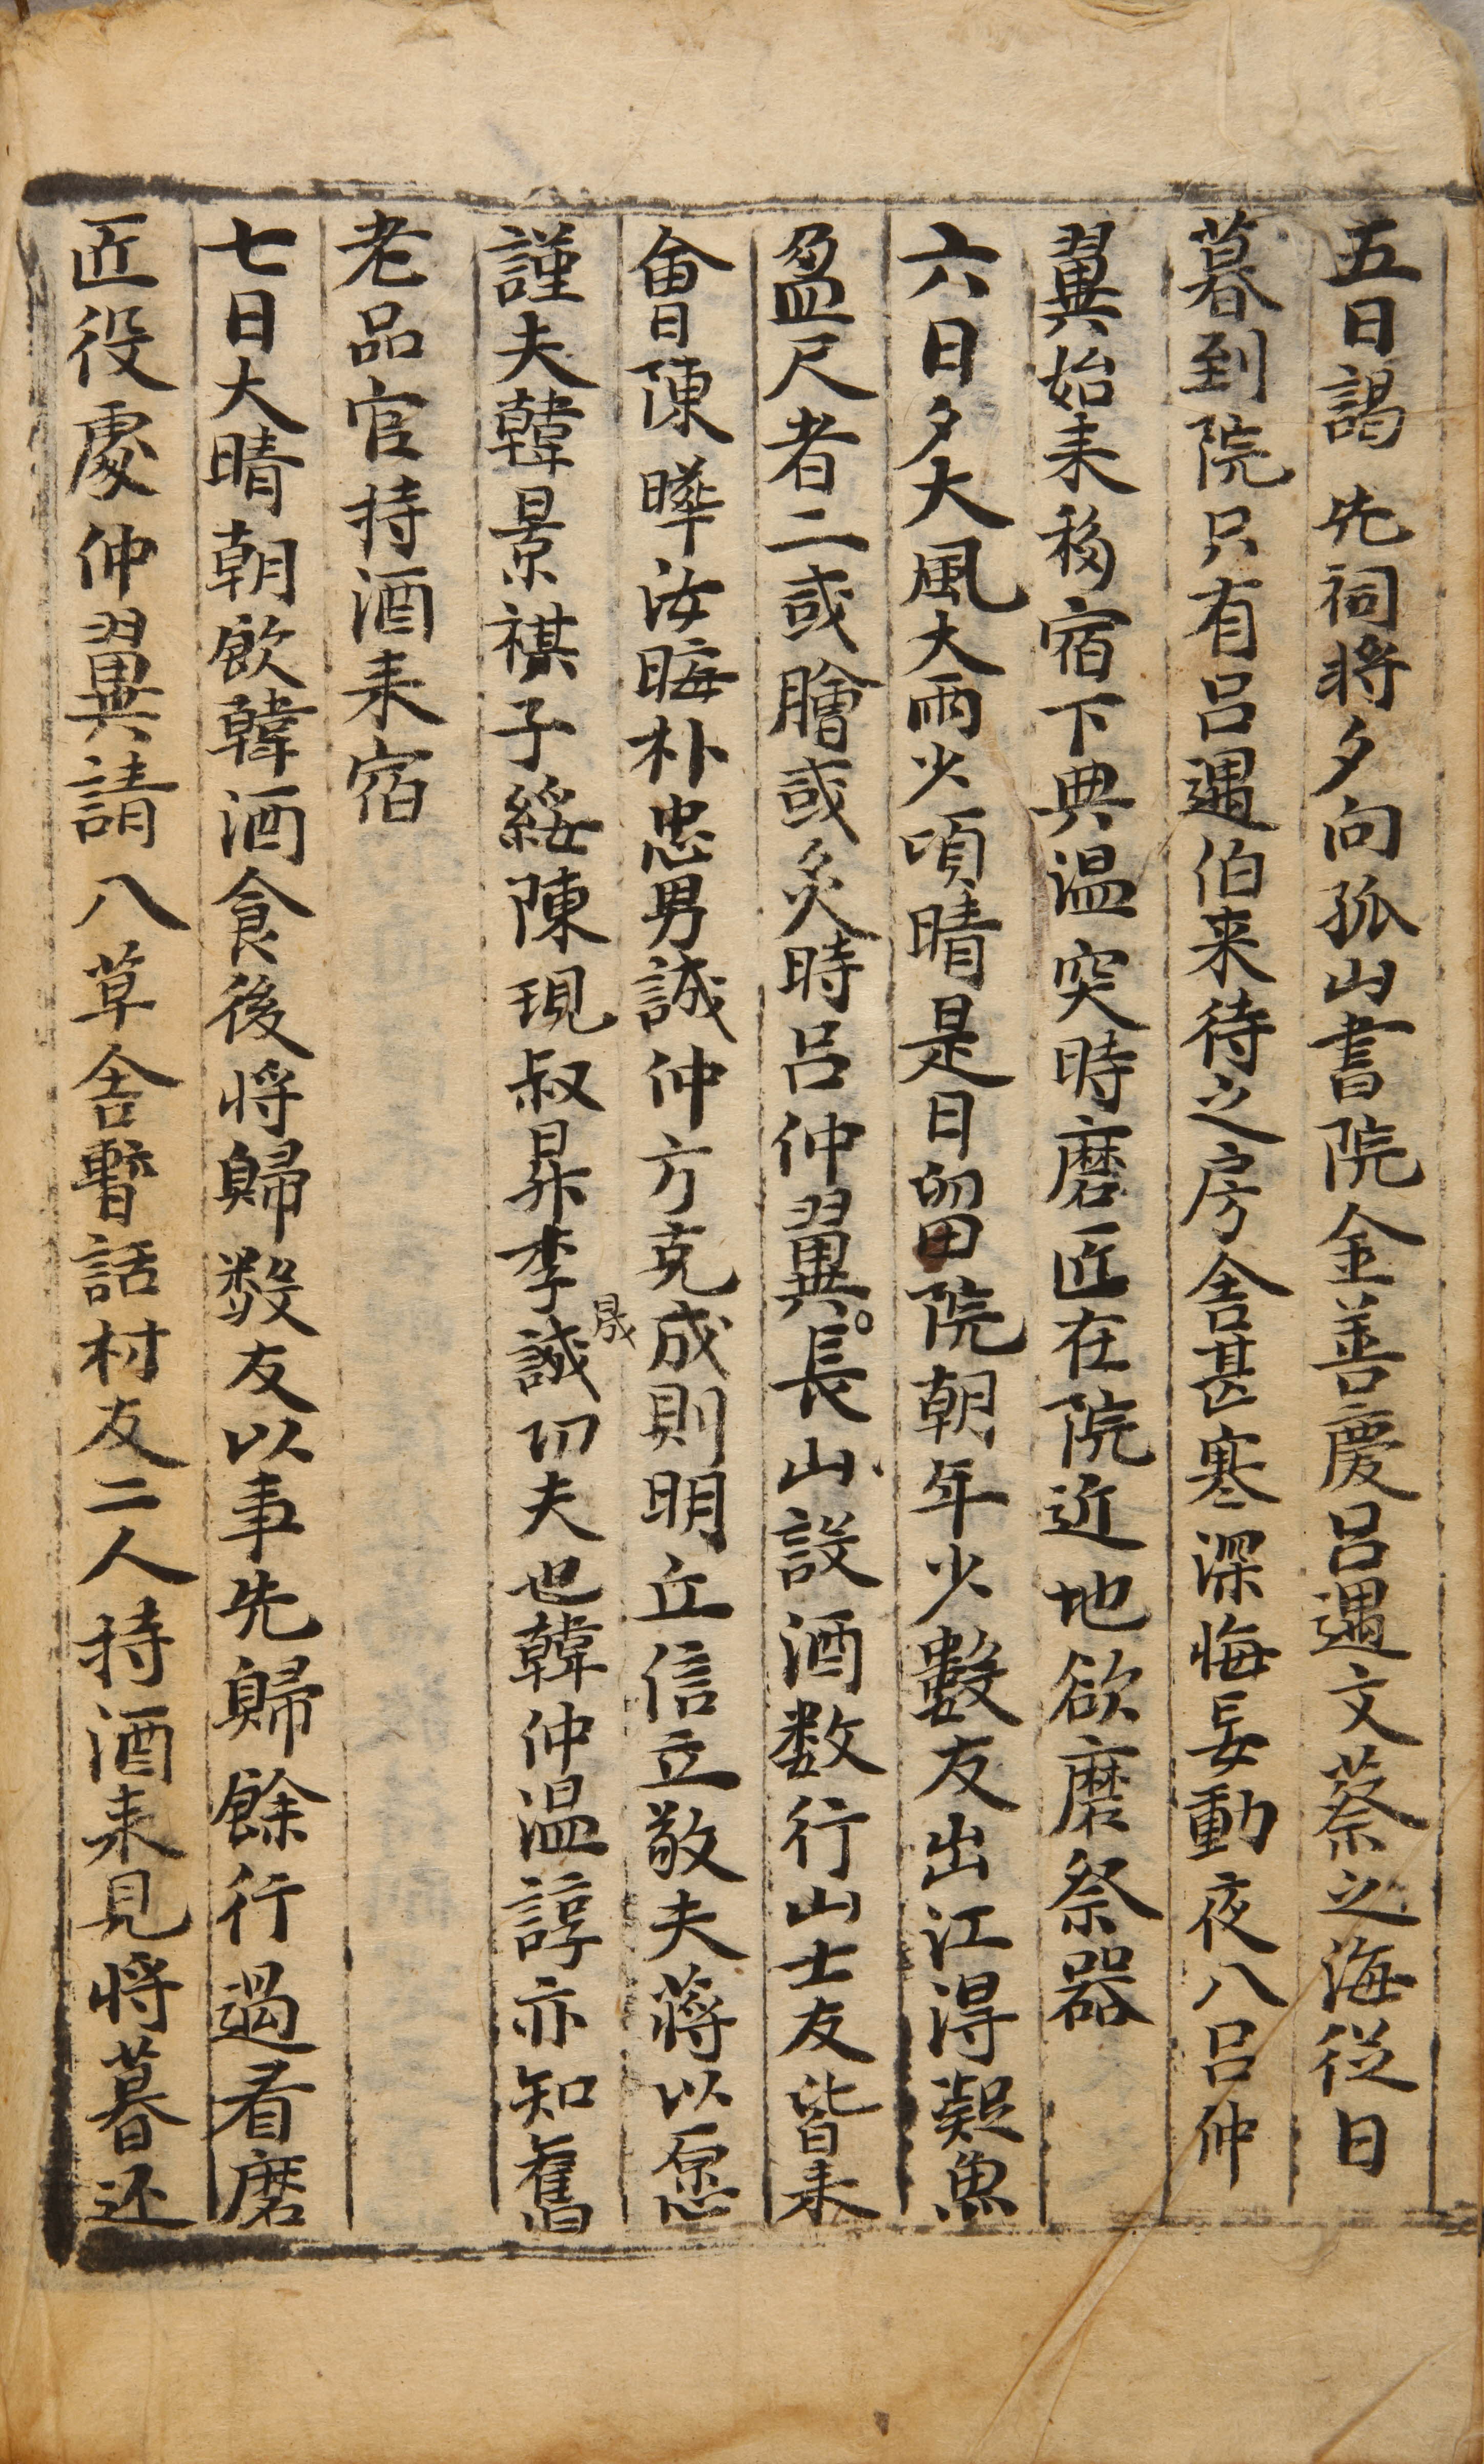 五日謁 先祠將夕向孤山書院金善慶呂遇文蔡之海從日
暮到院只有呂遇伯来待之房舍甚寒深悔妄動夜八呂仲
翼始来移宿下典温突時磨匠在院近地欲磨祭器
六日夕大風大雨少頃晴是日留院朝年少數友出江得凝魚
盈尺者二或膾或炙時呂仲翼○長山設酒数行山士友皆来
會陳曄汝晦朴忠男誠仲方克成則明丘信立敬夫蔣以愿
謹夫韓景祺子綏陳現叔昇李誠㓛夫也韓仲温諄亦知舊
晟
老品官持酒来宿
七日大晴朝飮韓酒食後將歸数友以事先歸餘行過看磨
匠役處仲翼請八草舍暫話村友二人持酒来見將暮还